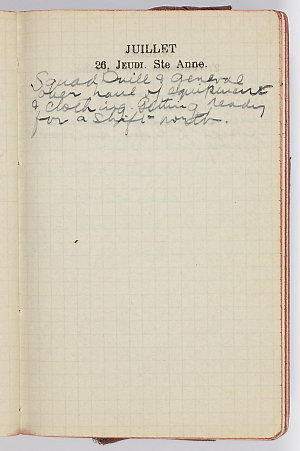 JUILLET
26, JEUDI. Ste Anne.
Squad Drill & General
over haul of equipment
& clothing. Getting ready
for a shift north.